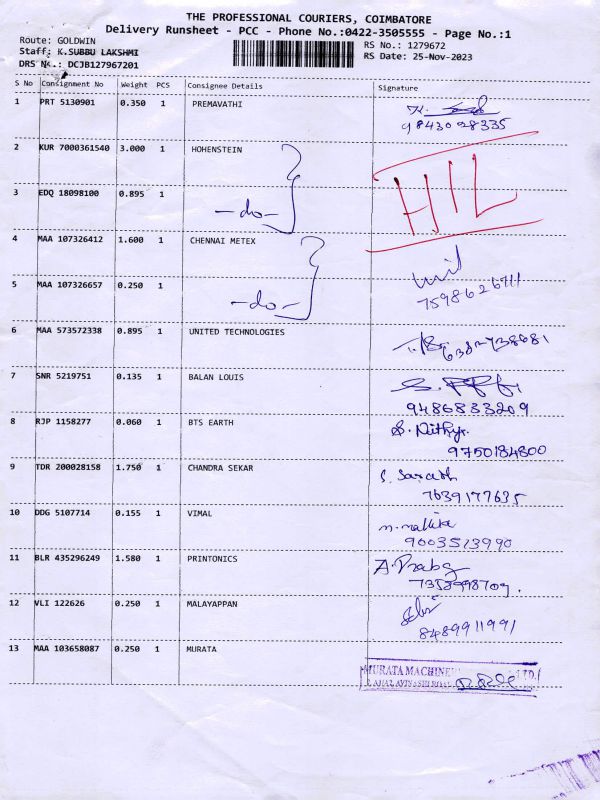 THE PROFESSIONAL COURIERS, COIMBATORE
Delivery Runsheet - PCC - Phone No.:0422-3505555 - Page No.:1
Route: GOLDWIN
RS No.: 1279672
Staff: K.SUBBU LAKSHMI
RS Date: 25-Nov-2023
DRS No.: DCJB127967201
S No Consignment No Weight PCS Consignee Details Signature
1 PRT 5130901 0.350 1 PREMAVATHI
K.
9843028335
2 KUR 7000361540 3.000 1 HOHENSTEIN
HIL
3 EDQ 18098100 0.895 1
-do-
4 MAA 107326412 1.600 1 CHENNAI METEX
5 MAA 107326657 0.250 1
7598626711
-do-
6 MAA 573572338 0.895 1 UNITED TECHNOLOGIES
6382738681
7 SNR 5219751 0.135 1 BALAN LOUIS
9486833209
8 RJP 1158277 0.060 1 BTS EARTH
S. Nithya
9750184800
9 TDR 200028158 1.750 1 CHANDRA SEKAR
S. Sarath
7639177635
10 DDG 5107714 0.155 1 VIMAL
m. mallika
9003513990
11 BLR 435296249 1.580 1 PRINTONICS
A. Prabu
7358998709.
12 VLI 122626 0.250 1 MALAYAPPAN
8489911991
13 MAA 103658087 0.250 1 MURATA
MURATA MACHINE LTD.
AVINASHI ROAD